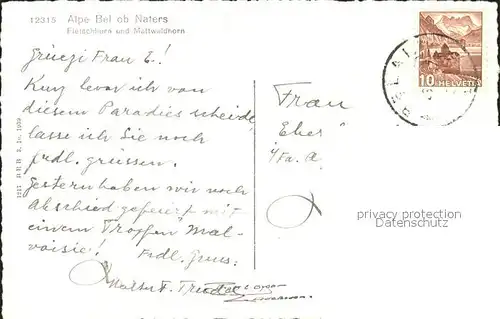 12315 Alpe Bel ob Naters
Fletschhorn und Mattwaldhorn
Grüezi Frau E.!
Kurz bevor ich von
diesem Paradies scheide,
lasse ich Sie noch
frdl. grüssen.
Gestern haben wir noch
Abschied gefeiert mit
einem Tropfen Mal-
voisie!
Frdl. Gruss:
Frau
Eher
i/Fa. A
10 HELVETIA
privacy protection
watermark